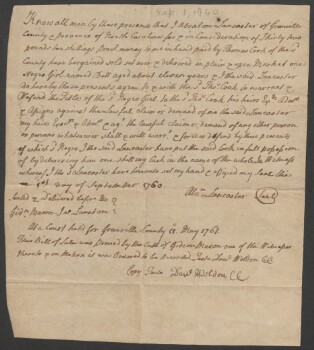 Sept 1, 1760
Know all men by these presents that I Absalom Lancaster of Granville
County & province of North Carolina for & in Consideration of Thirty two
pounds ten shillings Proc. money to me in hand paid by Thomas Cook of the sd
County have bargained sold set over & delivered in plain & open Market one
Negro Girl named Dall aged about eleven years & I the said Lancaster
do hereby these presents agree to & with the sd Thos. Cook to warrant &
defend the Title of the sd Negro Girl to the sd Thos. Cook his heirs
& Assigns against the lawful claim or demand of me the said Lancaster
my heirs & agt the lawful claim or demand of any other person
or persons whatsoever shall & will warrt & forever defend by these presents
of which sd Negro I the said Lancaster have put the said Cook in full possession
by delivering him one shilling in the name of the whole In Witness
whereof I the sd Lancaster have hereunto set my hand & affixed my Seal this
1st day of September 1760.
Lancaster Seal
Sealed & Delivered before us
Gidn. Macon Jas. Lancaster
At a Court held for Granville County May 176
This Bill of Sale was proved by the Oath of Gideon Macon one of the Witnesses
thereto & on Motion it was Ordered to be Recorded Weldon CC
Copy Teste Danl. Weldon CC